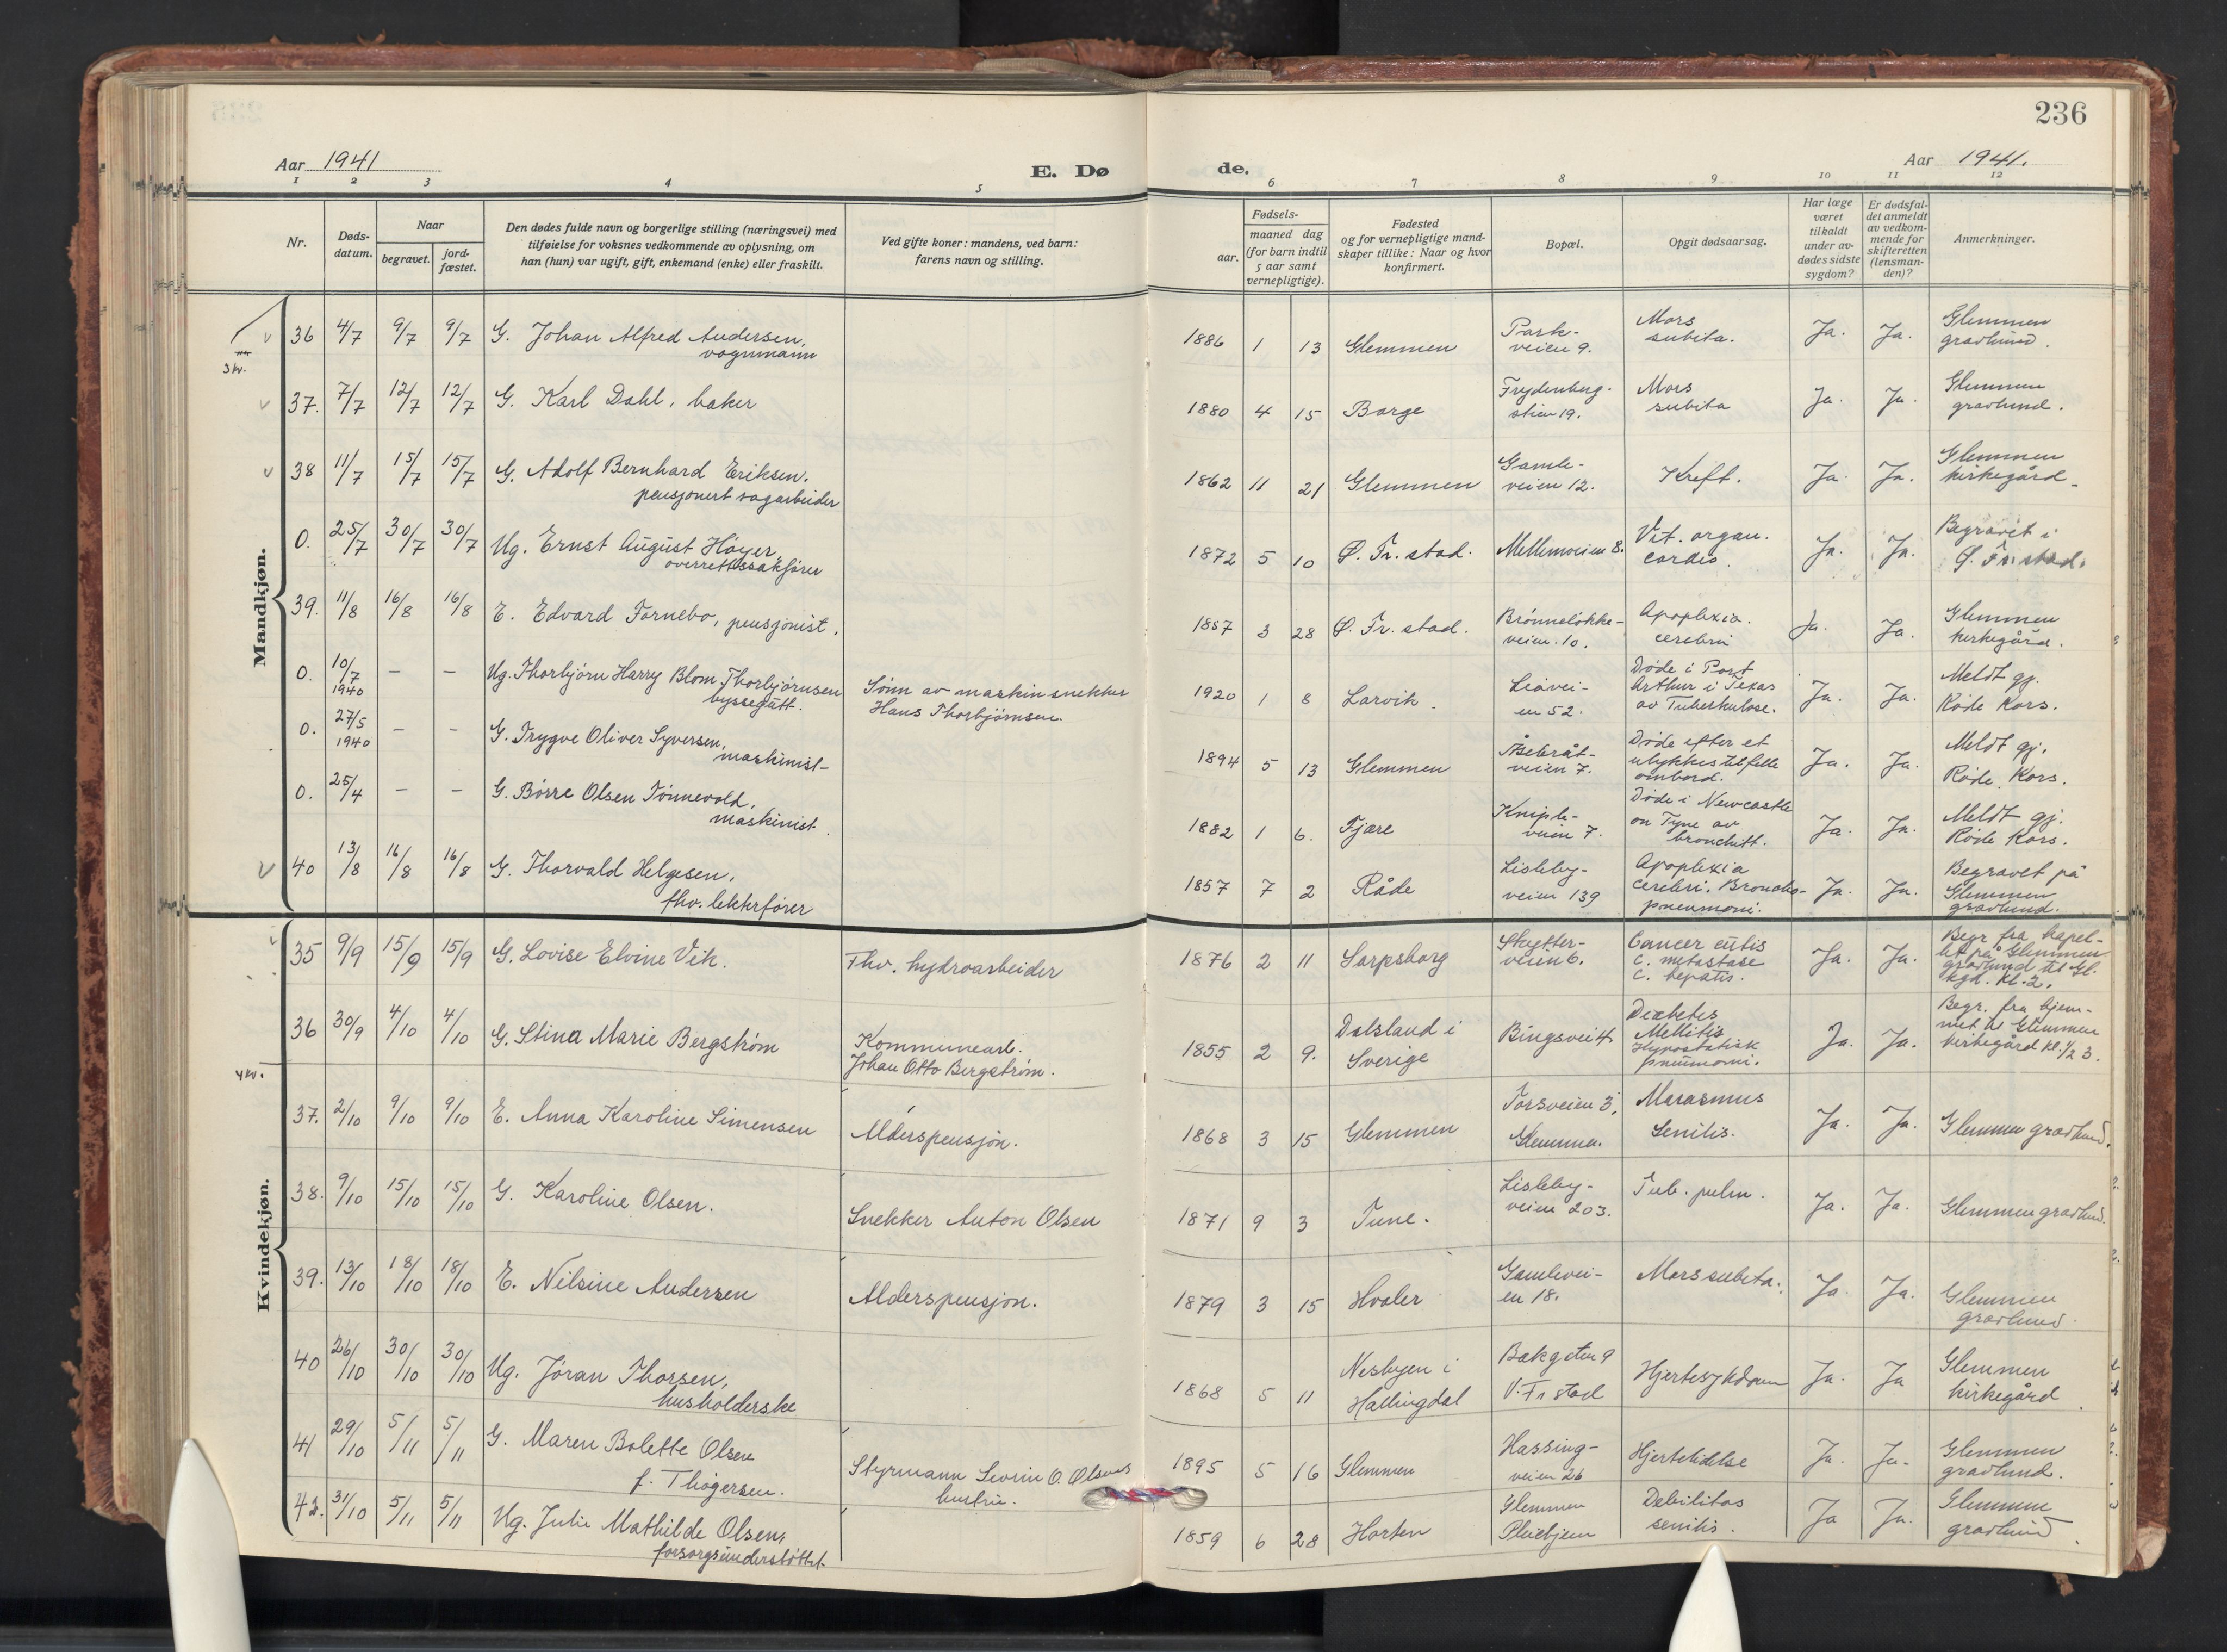 236
Aar 1941
E. Dø
de.
Aar 1941.
1 2 3 4 5 6 7 8 9 10 11 12
Nr.
Døds-
datum.
Naar
begravet.
jord-
fæstet.
Den dødes fulde navn og borgerlige stilling (næringsvei) med
tilføielse for voksnes vedkommende av oplysning, om
han (hun) var ugift, gift, enkemand (enke) eller fraskilt.
Ved gifte koner: mandens, ved barn:
farens navn og stilling.
Fødsels-
aar.
maaned dag
(for barn indtil
5 aar samt
vernepligtige).
Fødested
og for vernepligtige mand-
skaper tillike: Naar og hvor
konfirmert.
Bopæl.
Opgit dødsaarsag.
Har læge
været
tilkaldt
under av-
dødes sidste
sygdom?
Er dødsfal-
det anmeldt
av vedkom-
mende for
skifteretten
(lensman-
den)?
Anmerkninger.
Mandkjøn.
3 kv.
36 4/7 9/7 9/7 G. Johan Alfred Andersen,
vognmann
1886 1 13 Glemmen
Park-
veien 9.
Mors
subita.
Ja. Ja.
Glemmen
gravlund.
37. 7/7 12/7 12/7 G. Karl Dahl, baker
1880 4 15 Borge
Frydenberg-
stien 19.
Mors
subita
Ja. Ja.
Glemmen
gravlund.
38 11/7 15/7 15/7 G. Adolf Bernhard Eriksen.
pensjonert sagarbeider
1862 11 21 Glemmen
Gamle-
veien 12.
Kreft.
Ja. Ja.
Glemmen
kirkegård.
0. 25/7 30/7 30/7 Ug. Ernst August Høyer,
overrettssakfører
1872 5 10 Ø. Fr. stad.
Mellemveien 8.
Vit. organ.
cordis.
Ja. Ja.
Begravet i
Ø. Fr. stad.
39. 11/8 16/8 16/8 E. Edvard Fornebo, pensjonist.
1857 3 28 Ø. Fr. stad.
Brønneløkke-
veien. 10.
Apoplexia.
cerebri
Ja. Ja.
Glemmen
kirkegård.
0. 10/7
1940 – – Ug. Thorbjørn Harry Blom Thorbjørnsen
byssegutt.
Sønn av maskinsnekker
Hans Thorbjørnsen.
1920 1 8 Larvik.
Leievei-
en 52.
Døde i Port
Arthur i Texas
av Tuberkulose.
Ja. Ja.
Meldt gj.
Røde Kors.
0. 27/5
1940 – – G. Trygve Oliver Syversen,
maskinist
1894 5 13 Glemmen
Åsebråt-
veien 7.
Døde efter et
ulykkestilfelle
ombord.
Ja. Ja.
Meldt gj.
Røde Kors.
0. 25/4 – – G. Børre Olsen Tønnevold,
maskinist.
1882 1 6. Fjære
Kniple-
veien 7.
Døde i Newcastle
on Tyne av
bronchitt.
Ja. Ja.
Meldt gj.
Røde Kors.
40 13/8 16/8 16/8 G. Thorvald Helgesen,
fhv. lekterfører
1857 7 2 Råde
Lisleby-
veien 139
Apoplexia
cerebri. Broncho-
pneumoni.
Ja. Ja.
Begravet på
Glemmen
gravlund.
Kvindekjøn.
35 9/9 15/9 15/9 G. Lovise Elvine Vik.
Fhv. hydroarbeider
1876 2 11 Sarpsborg
Skytter-
veien 6.
Cancer cutis
c. metastase
c. hepatis.
Ja. Ja.
Begr. fra kapel-
let på Glemmen
gravlund til Gl.
kgd. Kl. 2.
36 30/9 4/10 4/10 G. Stina Marie Bergstrøm
Kommunearb.
Johan Otto Bergstrøm.
1855 2 9. Dalsland i
Sverige
Bingsvei 4
Diabetes
Mellitis
Hypostatisk
pneumoni.
Ja. Ja.
Begr. fra hjem-
met til Glemmen
kirkegård kl. 1/2 3.
4 kv.
37. 2/10 9/10 9/10 E. Anna Karoline Simensen
Alderspensjon.
1868 3 15 Glemmen
Torsveien 3,
Glemmen.
Marasmus
Senilis.
Ja. Ja.
Glemmen gravlund.
38. 9/10 15/10 15/10 G. Karoline Olsen.
Snekker Anton Olsen
1871 9 3 Tune.
Lisleby-
veien 203.
Tub. pulm.
Ja. Ja.
Glemmen gravlund.
39. 13/10 18/10 18/10 E. Nilsine Andersen
Alderspensjon.
1879 3 15 Hvaler
Gamlevei-
en 18.
Mors subita.
Ja. Ja.
Glemmen
gravlund.
40 26/10 30/10 30/10 Ug. Jøran Thorsen,
husholderske
1868 5 11 Nesbyen i
Hallingdal
Bakgaten 9
V. Fr stad
Hjertesykdom
Ja. Ja
Glemmen
kirkegård.
41 29/10 5/11 5/11 G. Maren Bolette Olsen
f. Thøgersen.
Styrmann Severin O. Olsens
hustru.
1895 5 16 Glemmen
Hassing-
veien 26
Hjertelidelse
Ja. Ja.
Glemmen
gravlund.
42. 31/10 5/11 5/11 Ug. Julie Mathilde Olsen,
forsorgsunderstøttet
1859 6 28 Horten
Glemmen
Pleiehjem
Debilitas
senilis.
Ja Ja.
Glemmen
gravlund.